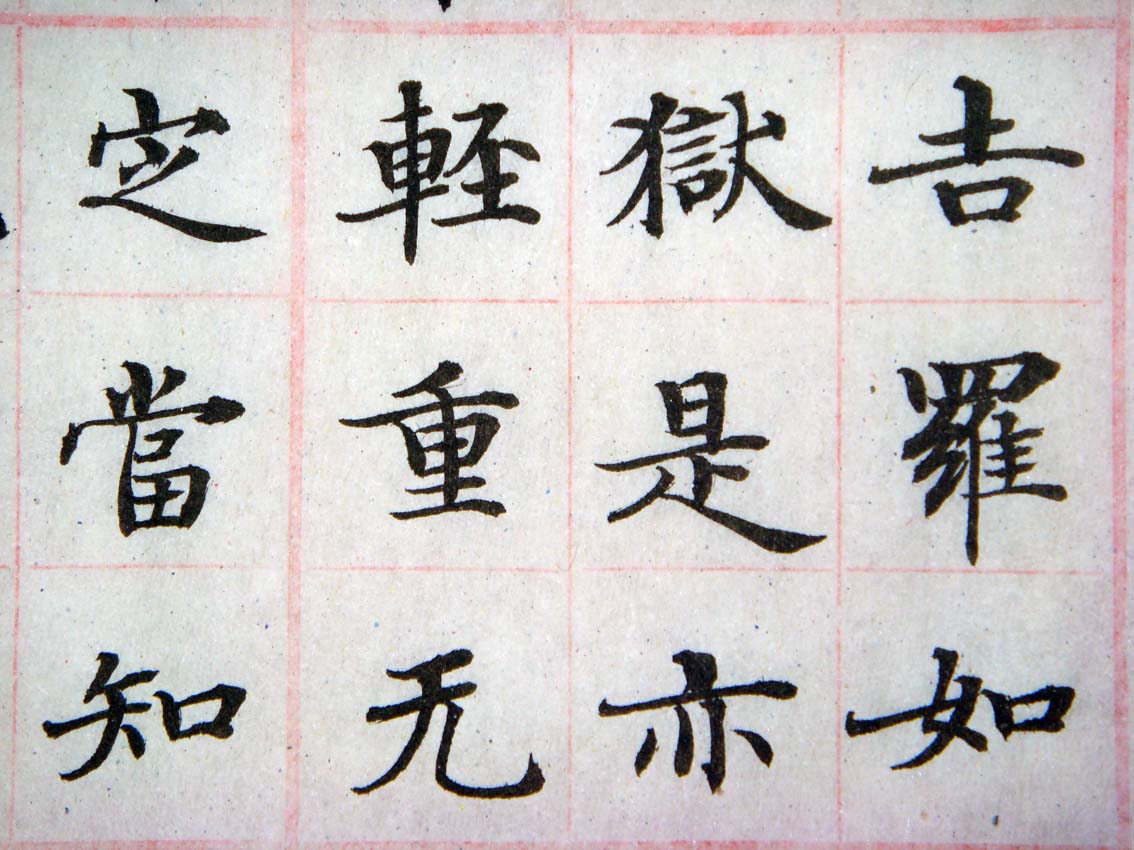 吉羅如
獄是亦
輕重无
定當知